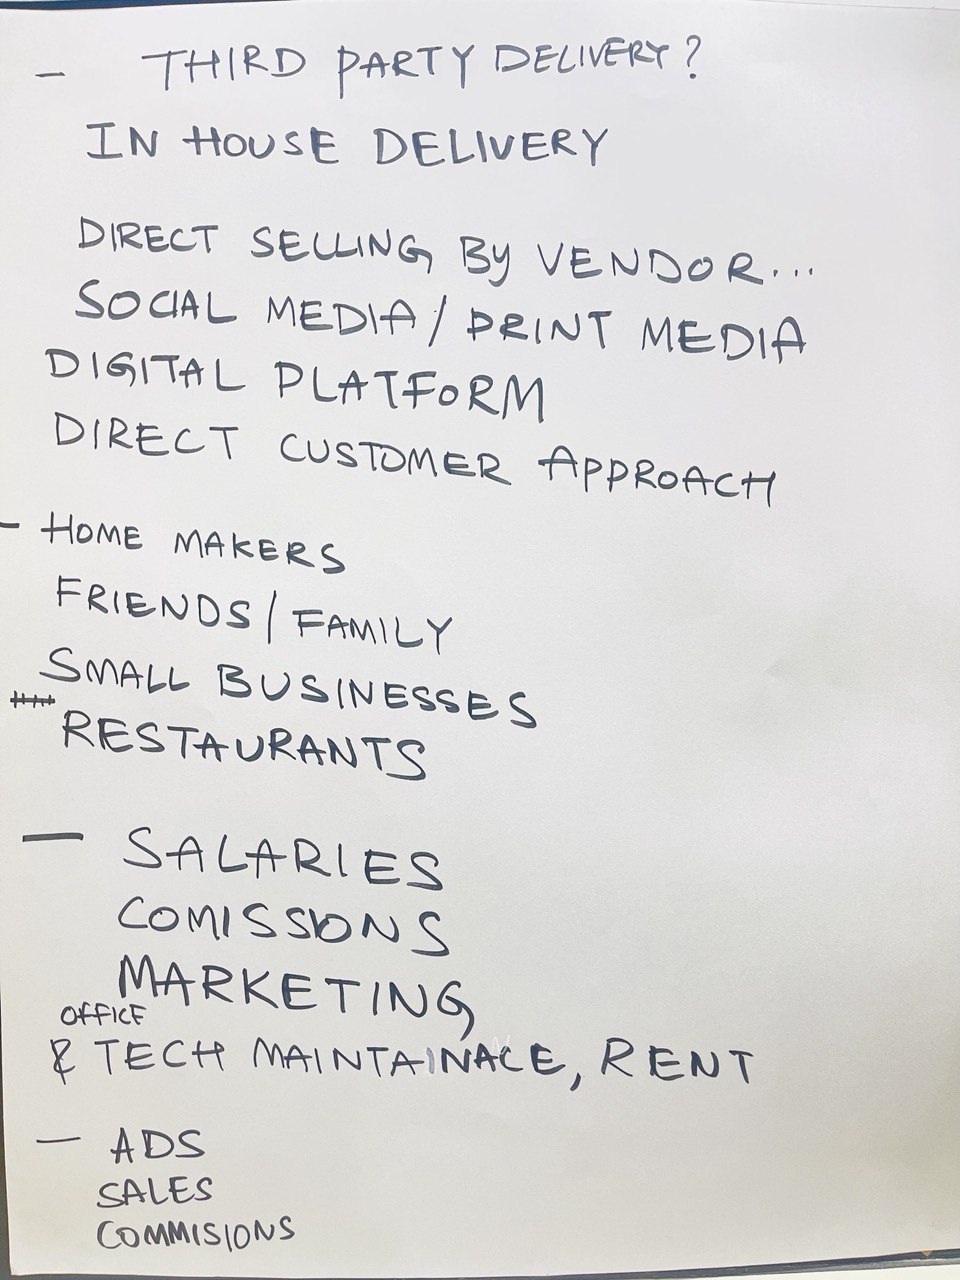 - THIRD PARTY DELIVERY?
IN HOUSE DELIVERY
DIRECT SELLING By VENDOR...
SOCIAL MEDIA / PRINT MEDIA
DIGITAL PLATFORM
DIRECT CUSTOMER APPROACH
- HOME MAKERS
FRIENDS / FAMILY
SMALL BUSINESSES
RESTAURANTS
- SALARIES
COMISSIONS
MARKETING
OFFICE
& TECH MAINTAINACE, RENT
- ADS
SALES
COMMISIONS